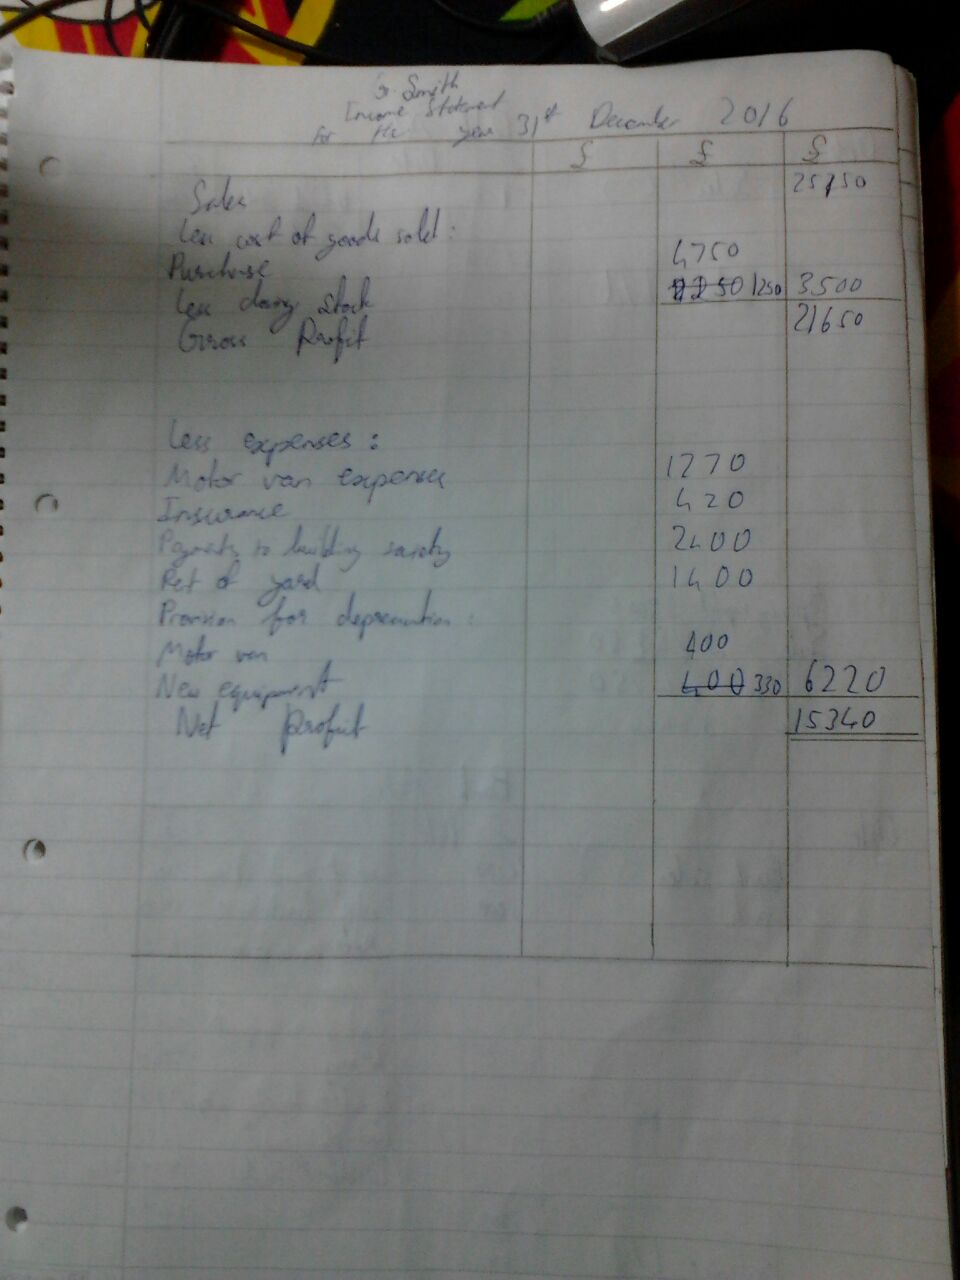 G. Smith
Income Statement
For the year 31st December 2016
£ £ £
Sales 25150
Less cost of goods sold:
Purchase 4750
Less closing Stock 1250 3500
Gross Profit 21650
Less expenses:
Motor van expenses 1270
Insurance 420
Payments to building society 2400
Ret of yard 1400
Provision for depreciation:
Motor van 400
New equipment 400 330 6220
Net Profit 15340